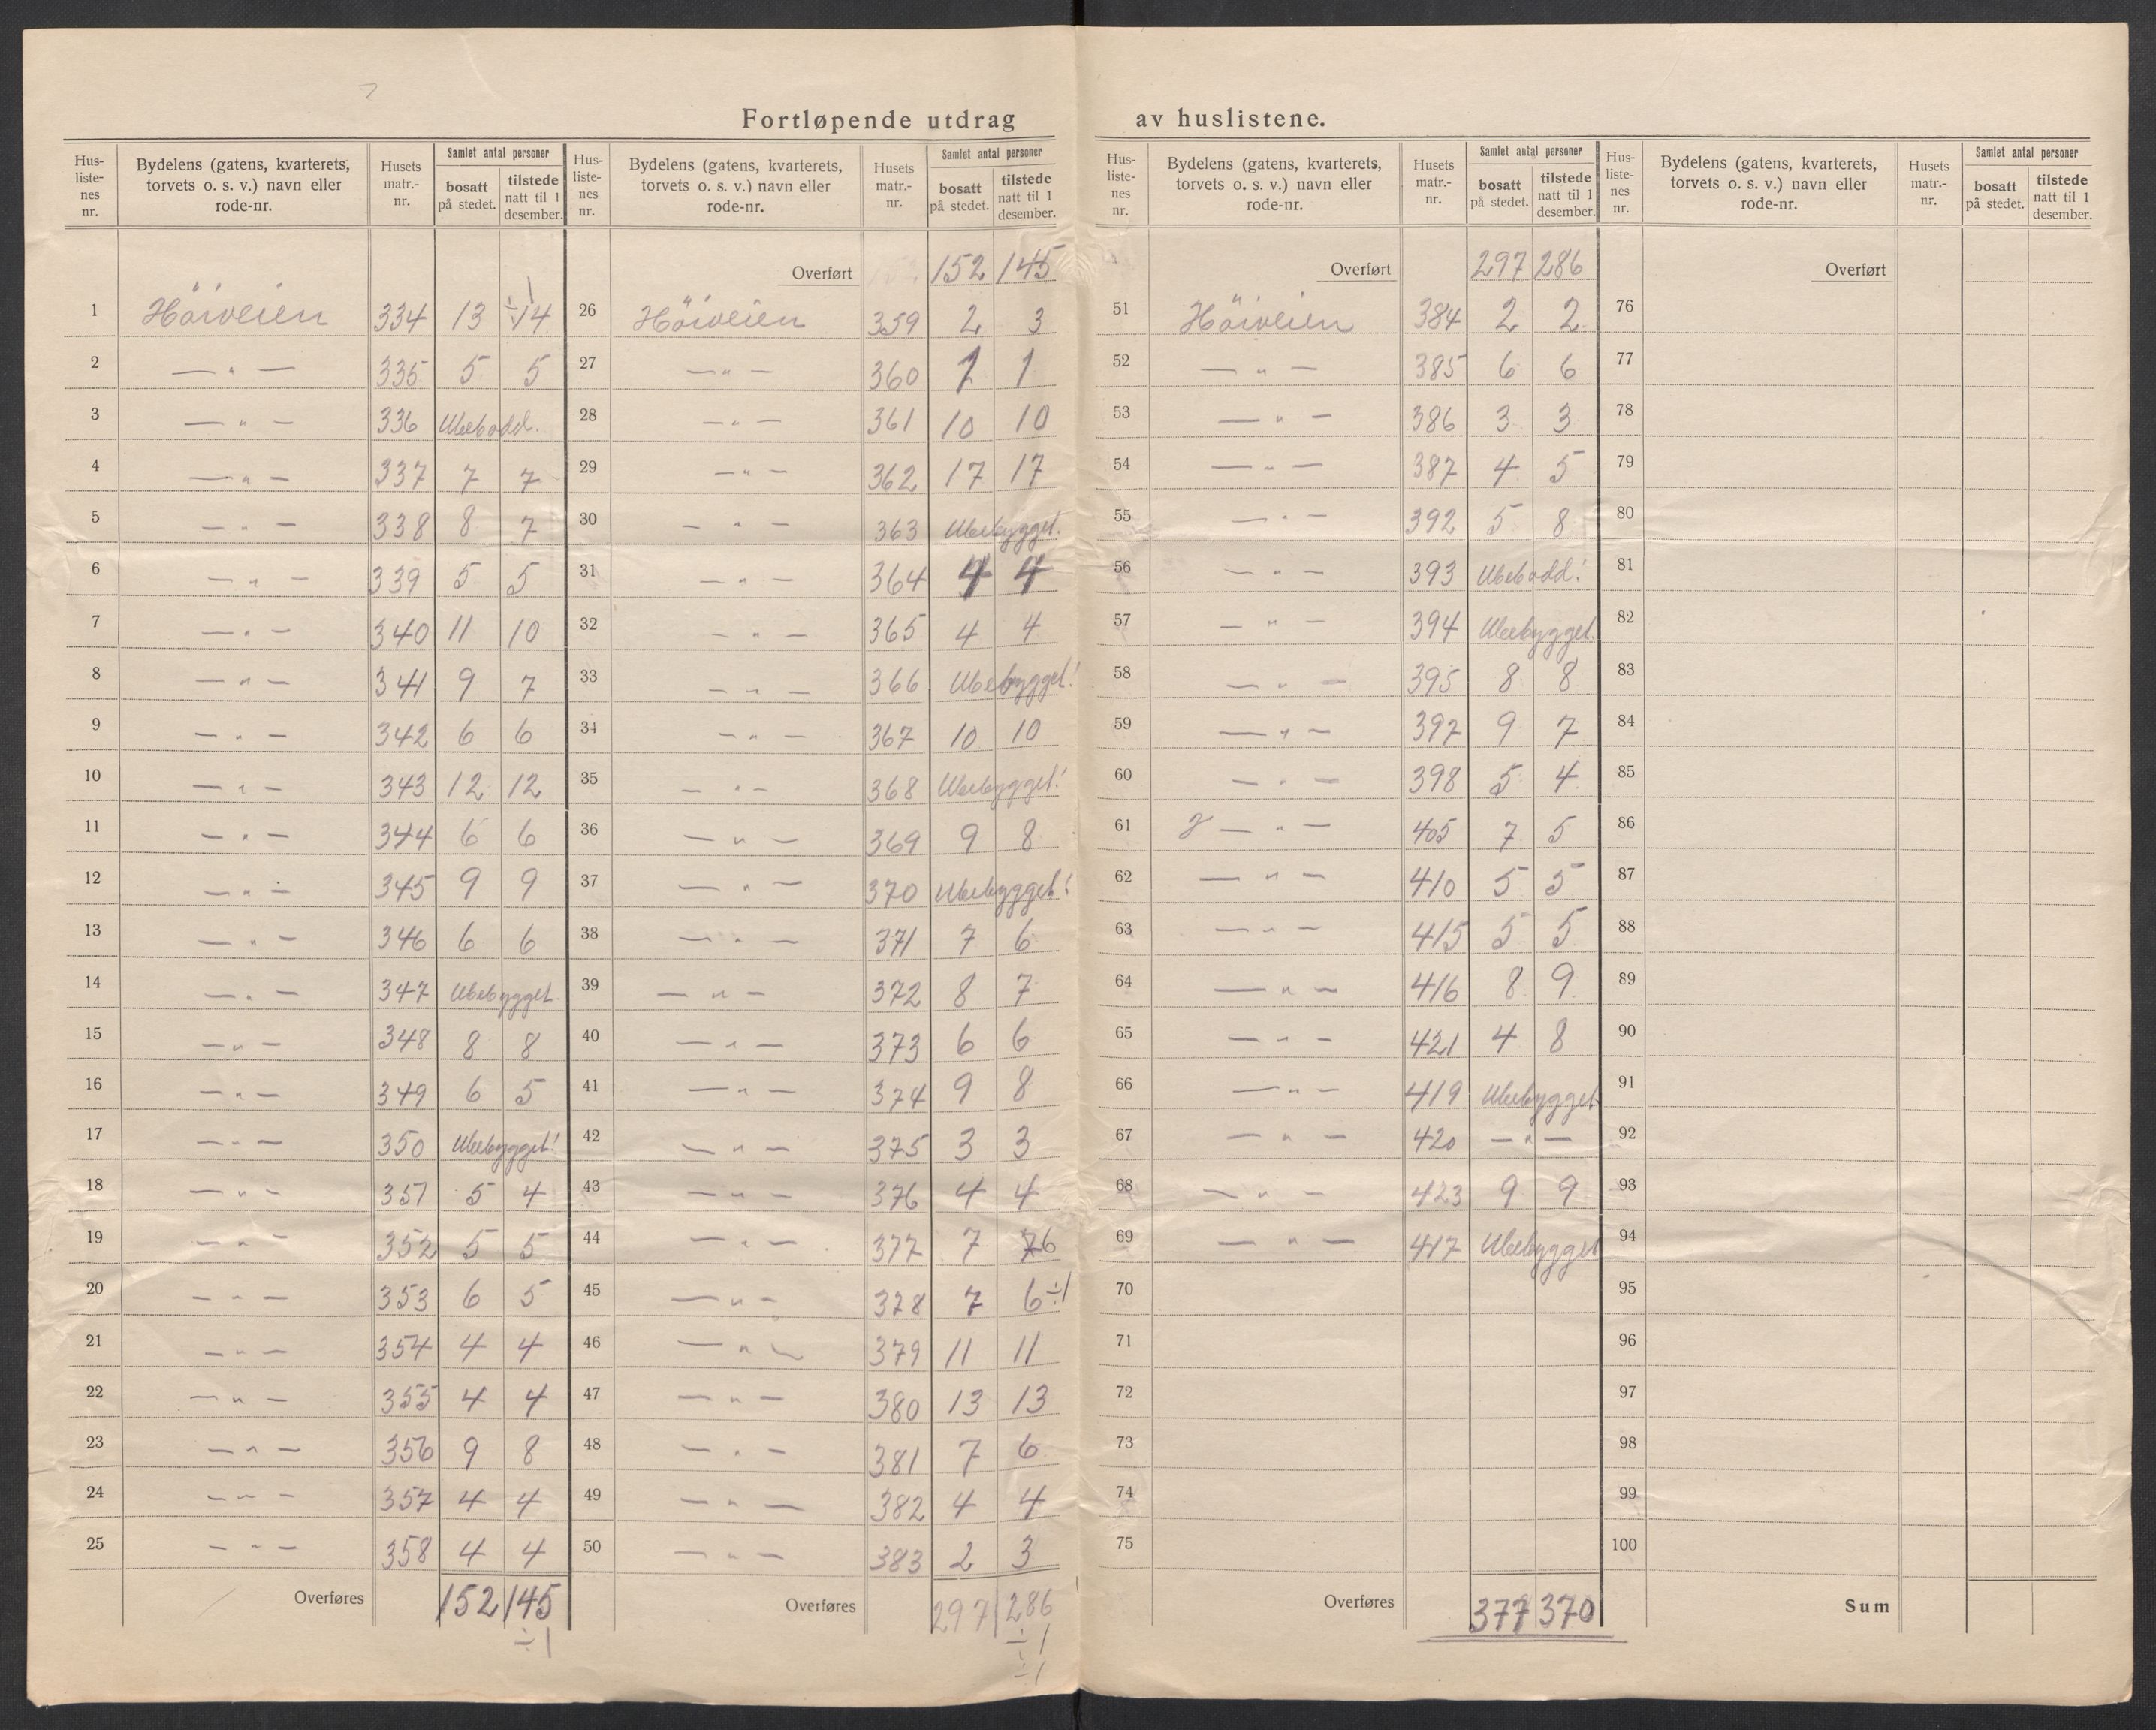 Fortløpende utdrag av huslistene.
Hus-liste-nes nr. | Bydelens (gatens, kvarterets, torvets o. s. v.) navn eller rode-nr. | Husets matr.-nr. | Samlet antal personer | bosatt på stedet. | tilstede natt til 1 desember.
÷1
1 Höiveien 334 13 14
2 — " — 335 5 5
3 — " — 336 Ubebodd.
4 — " — 337 7 7
5 — " — 338 8 7
6 — " — 339 5 5
7 — " — 340 11 10
8 — " — 341 9 7
9 — " — 342 6 6
10 — " — 343 12 12
11 — " — 344 6 6
12 — " — 345 9 9
13 — " — 346 6 6
14 — " — 347 Ubebygget.
15 — " — 348 8 8
16 — " — 349 6 5
17 — " — 350 Ubebygget!
18 — " — 351 5 4
19 — " — 352 5 5
20 — " — 353 6 5
21 — " — 354 4 4
22 — " — 355 4 4
23 — " — 356 9 8
24 — " — 357 4 4
25 — " — 358 4 4
Overføres 152 145
÷1
Hus-liste-nes nr. | Bydelens (gatens, kvarterets, torvets o. s. v.) navn eller rode-nr. | Husets matr.-nr. | Samlet antal personer | bosatt på stedet. | tilstede natt til 1 desember.
Overført 152 145
26 Höiveien 359 2 3
27 — " — 360 1 1
28 — " — 361 10 10
29 — " — 362 17 17
30 — " — 363 Ubebygget.
31 — " — 364 4 4
32 — " — 365 4 4
33 — " — 366 Ubebygget!
34 — " — 367 10 10
35 — " — 368 Ubebygget!
36 — " — 369 9 8
37 — " — 370 Ubebygget!
38 — " — 371 7 6
39 — " — 372 8 7
40 — " — 373 6 6
41 — " — 374 9 8
42 — " — 375 3 3
43 — " — 376 4 4
44 — " — 377 7 76
45 — " — 378 7 6 ÷1
46 — " — 379 11 11
47 — " — 380 13 13
48 — " — 381 7 6
49 — " — 382 4 4
50 — " — 383 2 3
Overføres 297 286
÷1
÷1
Hus-liste-nes nr. | Bydelens (gatens, kvarterets, torvets o. s. v.) navn eller rode-nr. | Husets matr.-nr. | Samlet antal personer | bosatt på stedet. | tilstede natt til 1 desember.
Overført 297 286
51 Höiveien 384 2 2
52 — " — 385 6 6
53 — " — 386 3 3
54 — " — 387 4 5
55 — " — 392 5 8
56 — " — 393 Ubebodd!
57 — " — 394 Ubebygget.
58 — " — 395 8 8
59 — " — 397 9 7
60 — " — 398 5 4
61 — " — 405 7 5
62 — " — 410 5 5
63 — " — 415 5 5
64 — " — 416 8 9
65 — " — 421 4 8
66 — " — 419 Ubebygget
67 — " — 420 — " —
68 — " — 423 9 9
69 — " — 417 Ubebygget
70
71
72
73
74
75
Overføres 377 370
Hus-liste-nes nr. | Bydelens (gatens, kvarterets, torvets o. s. v.) navn eller rode-nr. | Husets matr.-nr. | Samlet antal personer | bosatt på stedet. | tilstede natt til 1 desember.
Overført
76
77
78
79
80
81
82
83
84
85
86
87
88
89
90
91
92
93
94
95
96
97
98
99
100
Sum